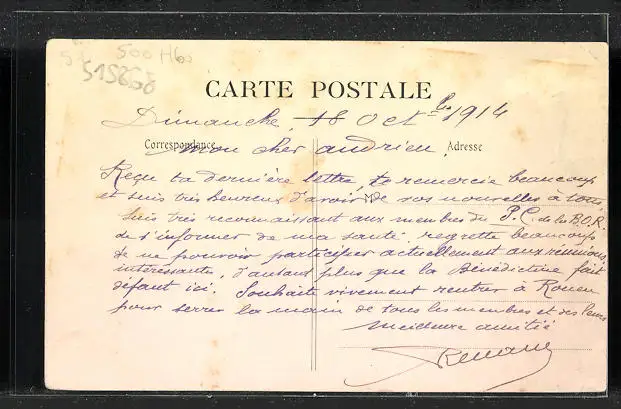 500 Hbo
515868
CARTE POSTALE
Dimanche, 18 Octbre 1914
Correspondance
Adresse
Mon cher andrien,
Reçu ta dernière lettre, te remercie beaucoup
et suis très heureux d'avoir de vos nouvelles à tous.
M
Suis très reconnaissant aux membres du P.C. de la B.O.R.
de s'informer de ma santé regrette beaucoup
de ne pouvoir participer actuellement aux réunions
intéressante, d'autant plus que la Bénédictine fait
défaut ici. Souhaite vivement rentrer à Rouen
pour serrer la main de tous les membres et des leurs
meilleure amitié